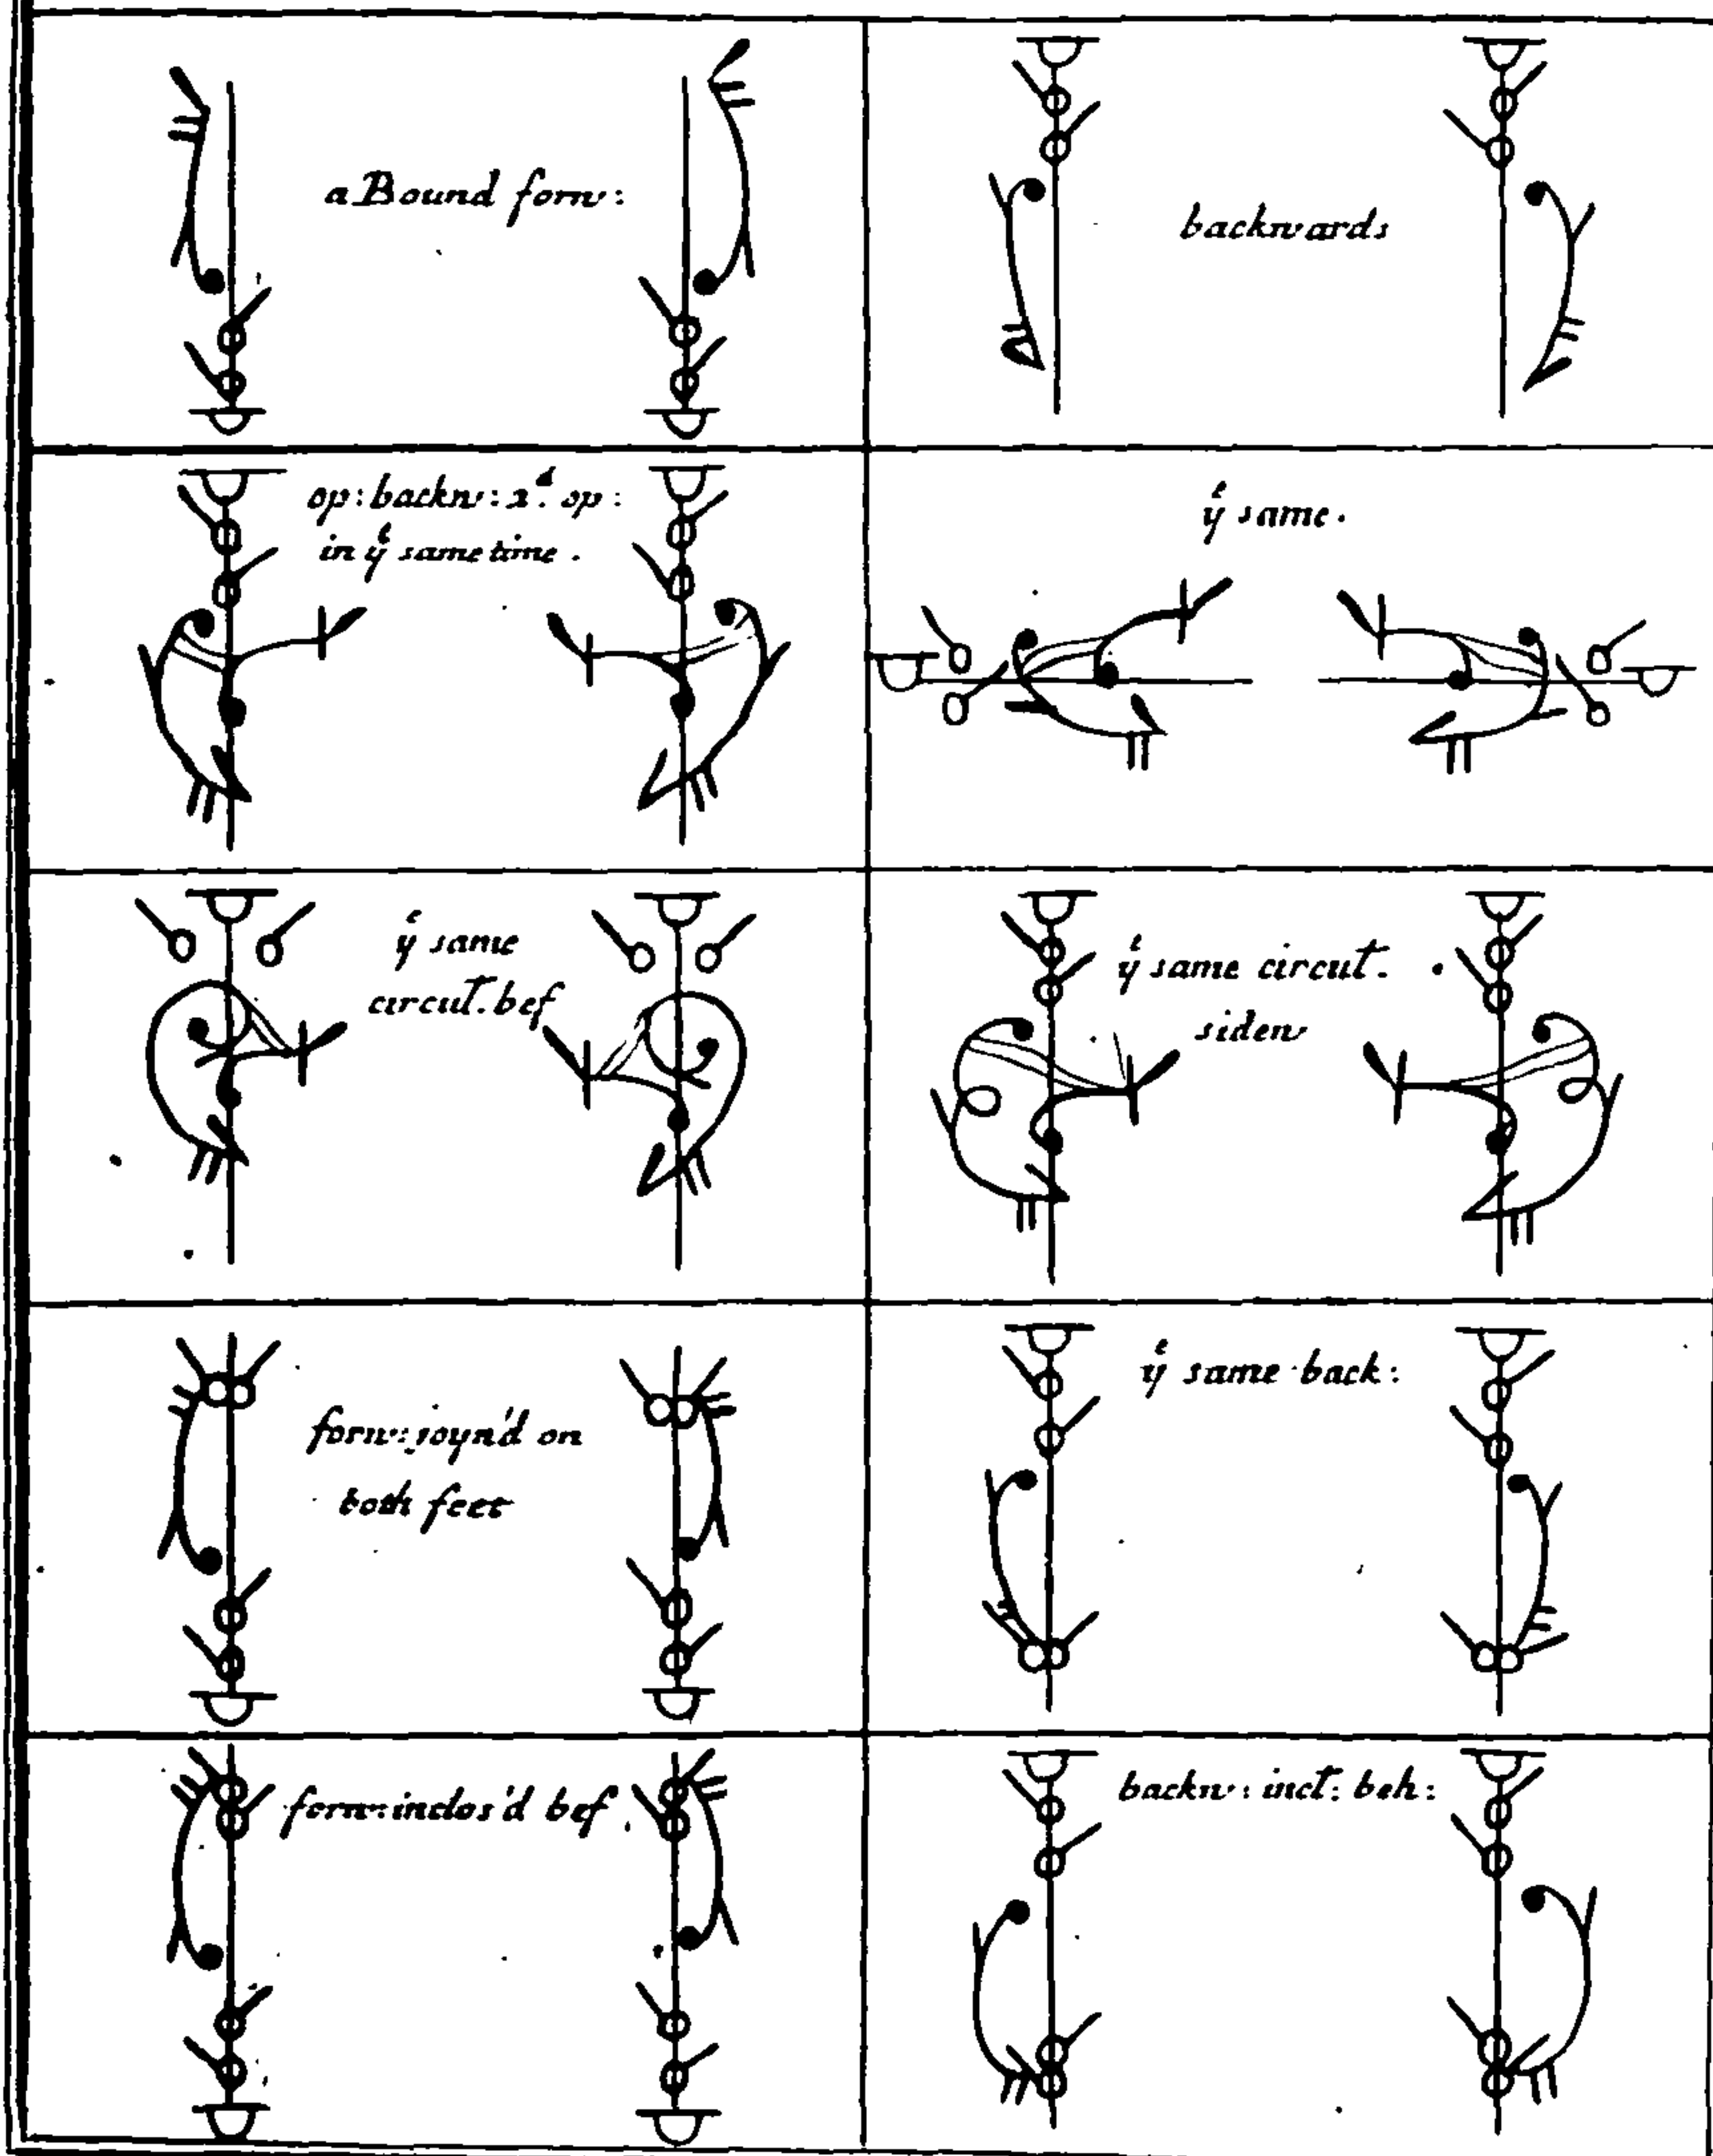 a Bound forw:
backwards
op: backw: 2.d op:
in ye same time.
ye same.
ye same
circul. bef
ye same circul.
sidew
forw: joyn'd on
both feet
ye same back:
forw: inclos'd bef.
backw: incl: beh: